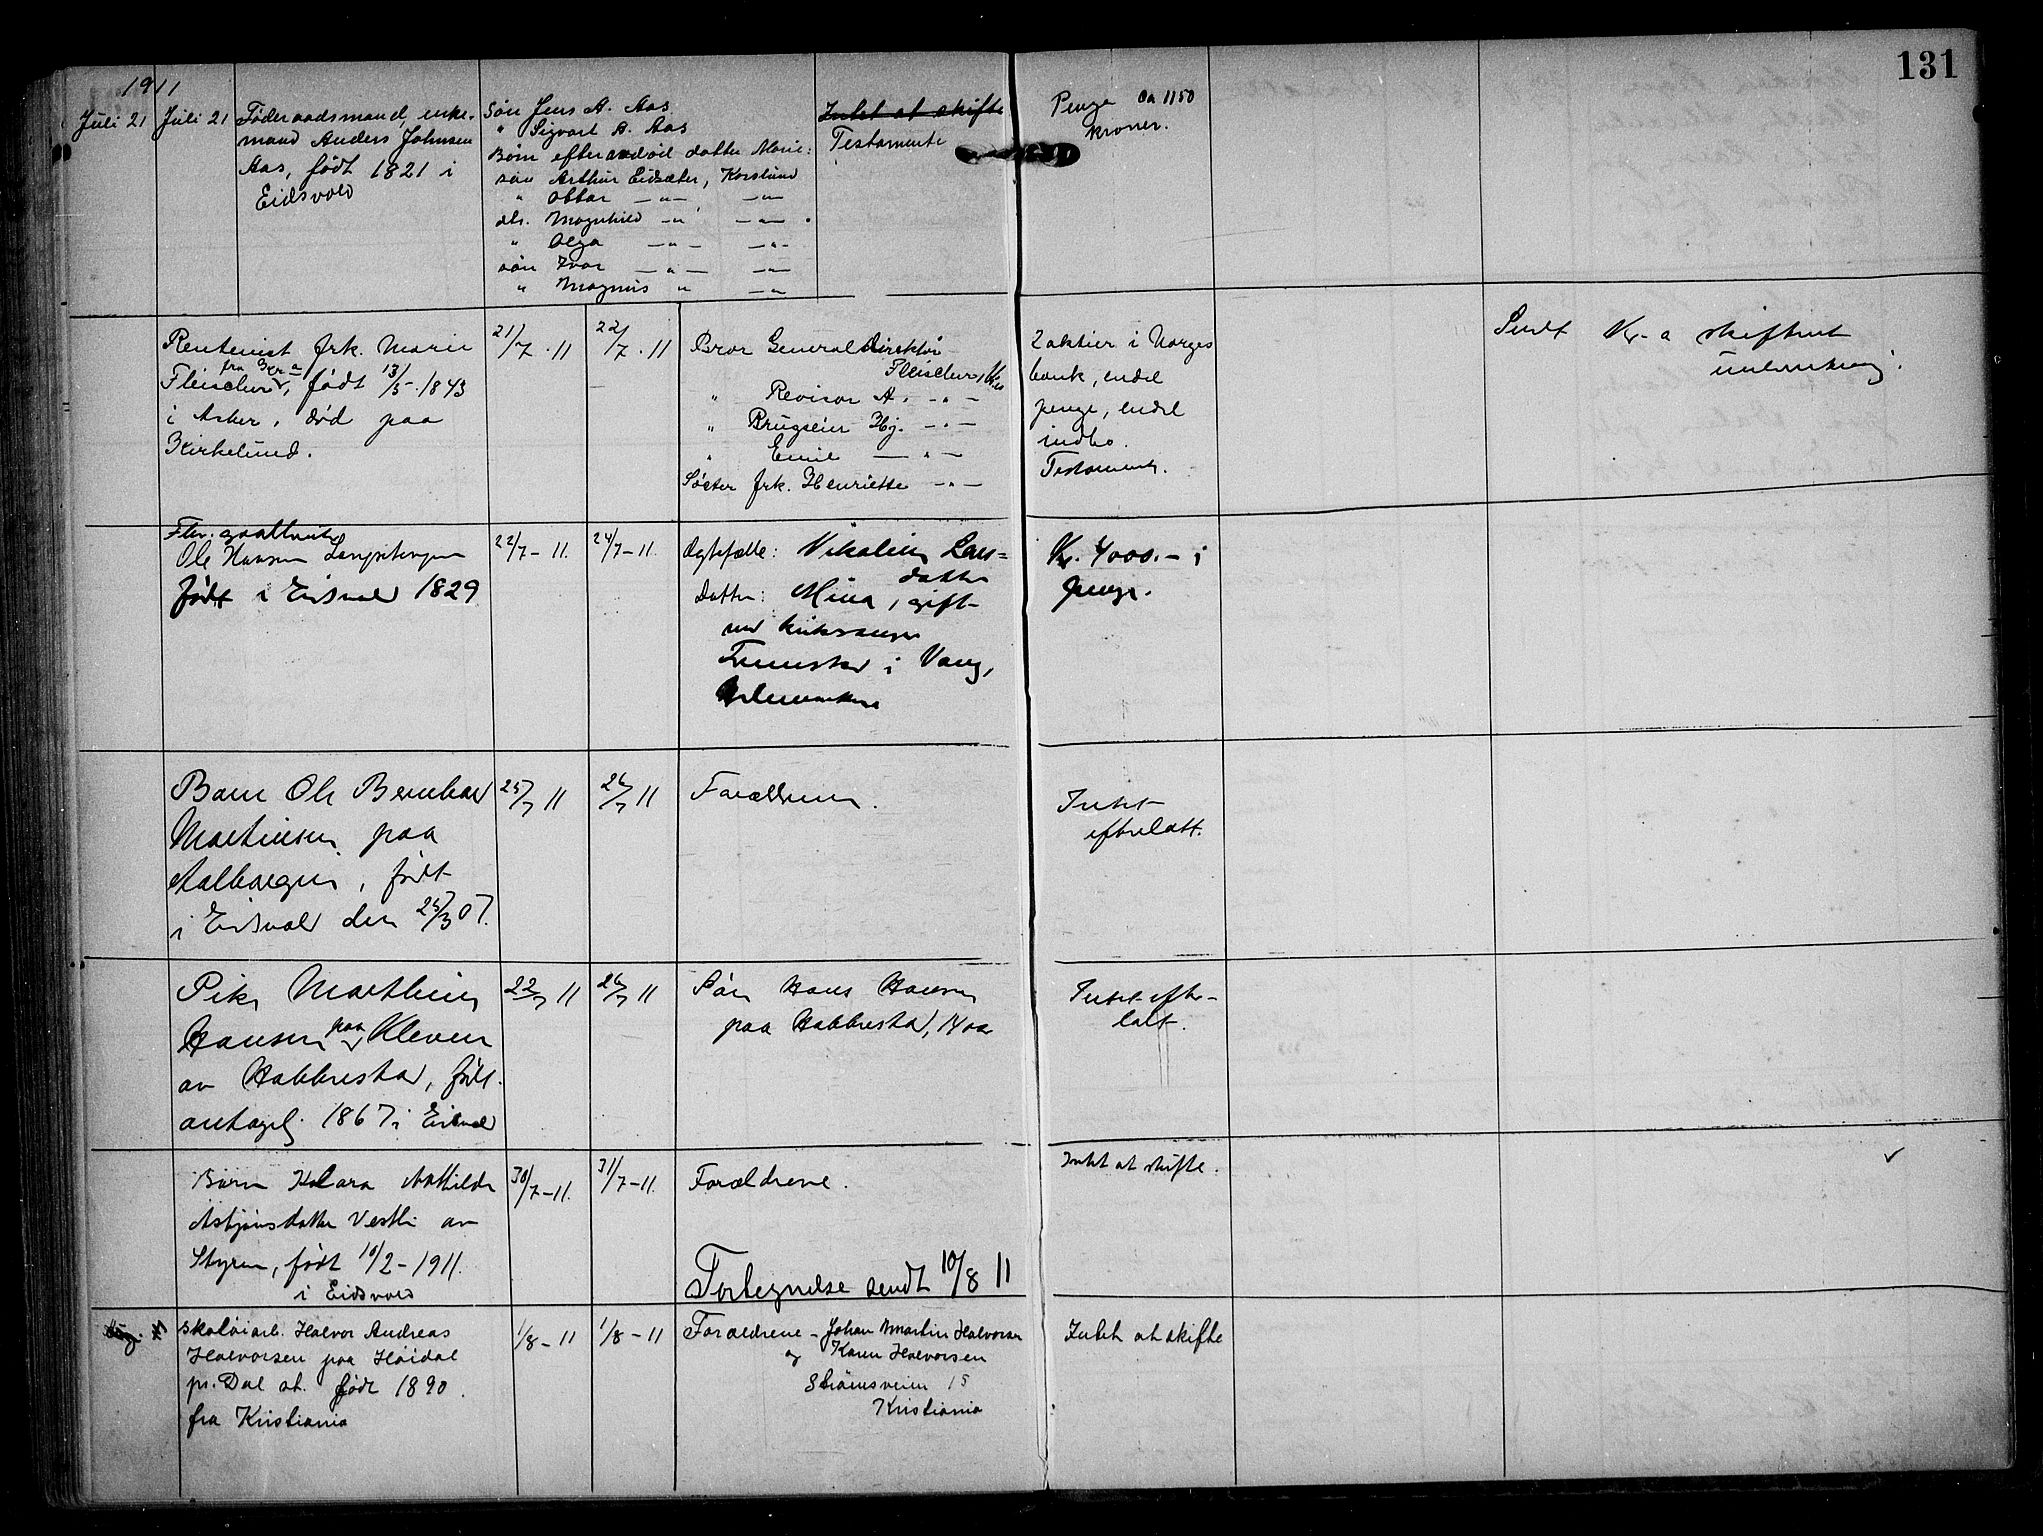 131
1911
Juli 21 Juli 21 Föderaadsmand, enke-
mand Anders Johnsen
Aas, född 1821 i
Eidsvold
Sön Jens A. Aas
" Sigvart A. Aas
Börn efter avdöd datter Marie:
sön Arthur Eidsæter, Korslund
" Ottar — " — — " —
dtr. Magnhild — " — — " —
" Olga — " — — " —
sön Ivar — " — — " —
" Magnus " — " —
Intet at skifte
Testamente
Penge ca 1150
kroner.
Rentenist frk. Marie
fra Kr.a
Fleischer, född 13/5-1843
i Asker, död paa
Kirkelund.
21/7-11 22/7-11
Bror Generaldirektör
Fleischer, Kr.a
" Revisor A. — " —
" Brugseier Hj. — " —
" Emil — " —
Söster frk. Henriette — " —
2 aktier i Norges
bank, endel
penge, endel
indbo.
Testament.
Sendt Kr.a skifteret
underretning.
Ole Hansen
født i Eidsvold 1829
22/7-11. 24/7-11.
Ægtefælle: Nikoline Lars=
datter
Datter: Mina, gift
med kirkesanger
i Vang,
Hedemarken
Kr. 4000.- i
penge.
Barn Ole Bernhard
Martinsen paa
født
i Eidsvold den 25/3 07.
25/7 11 26/7 11
Forældrene.
Intet
efterlatt.
Pike Marthine
Hansen paa Kleven
av Habberstad, født
antagel. 1867 i Eidsvold
22/7 11 26/7 11
Sön Hans Hansen
paa Habberstad, 14 aar
Intet efter-
latt.
Barn Klara Mathilde
Asbjörnsdatter Vestli av
Styren, født 10/2-1911.
i Eidsvold
30/7-11. 31/7-11.
Forældrene.
Intet at skifte.
Fortegnelse sendt 10/8 11
Aug. 1
Skotöiarb. Halvor Andreas
Halvorsen paa Höidal
pr. Dal st. född 1890.
fra Kristiania
1/8-11 1/8-11
Forældrene – Johan Martin Halvorsen
og Karen Halvorsen
Strömsveien 15
Kristiania
Intet at skifte